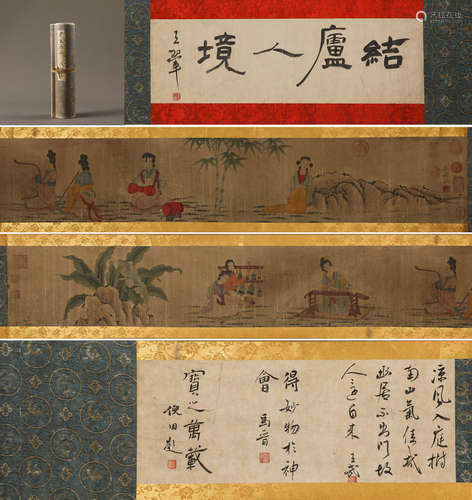 結廬人境
王翬
涼風入庭樹
南山氣佳
居不出門故
人自來 王武
得妙物於神
會 馬晉
寶之萬載
倪田題